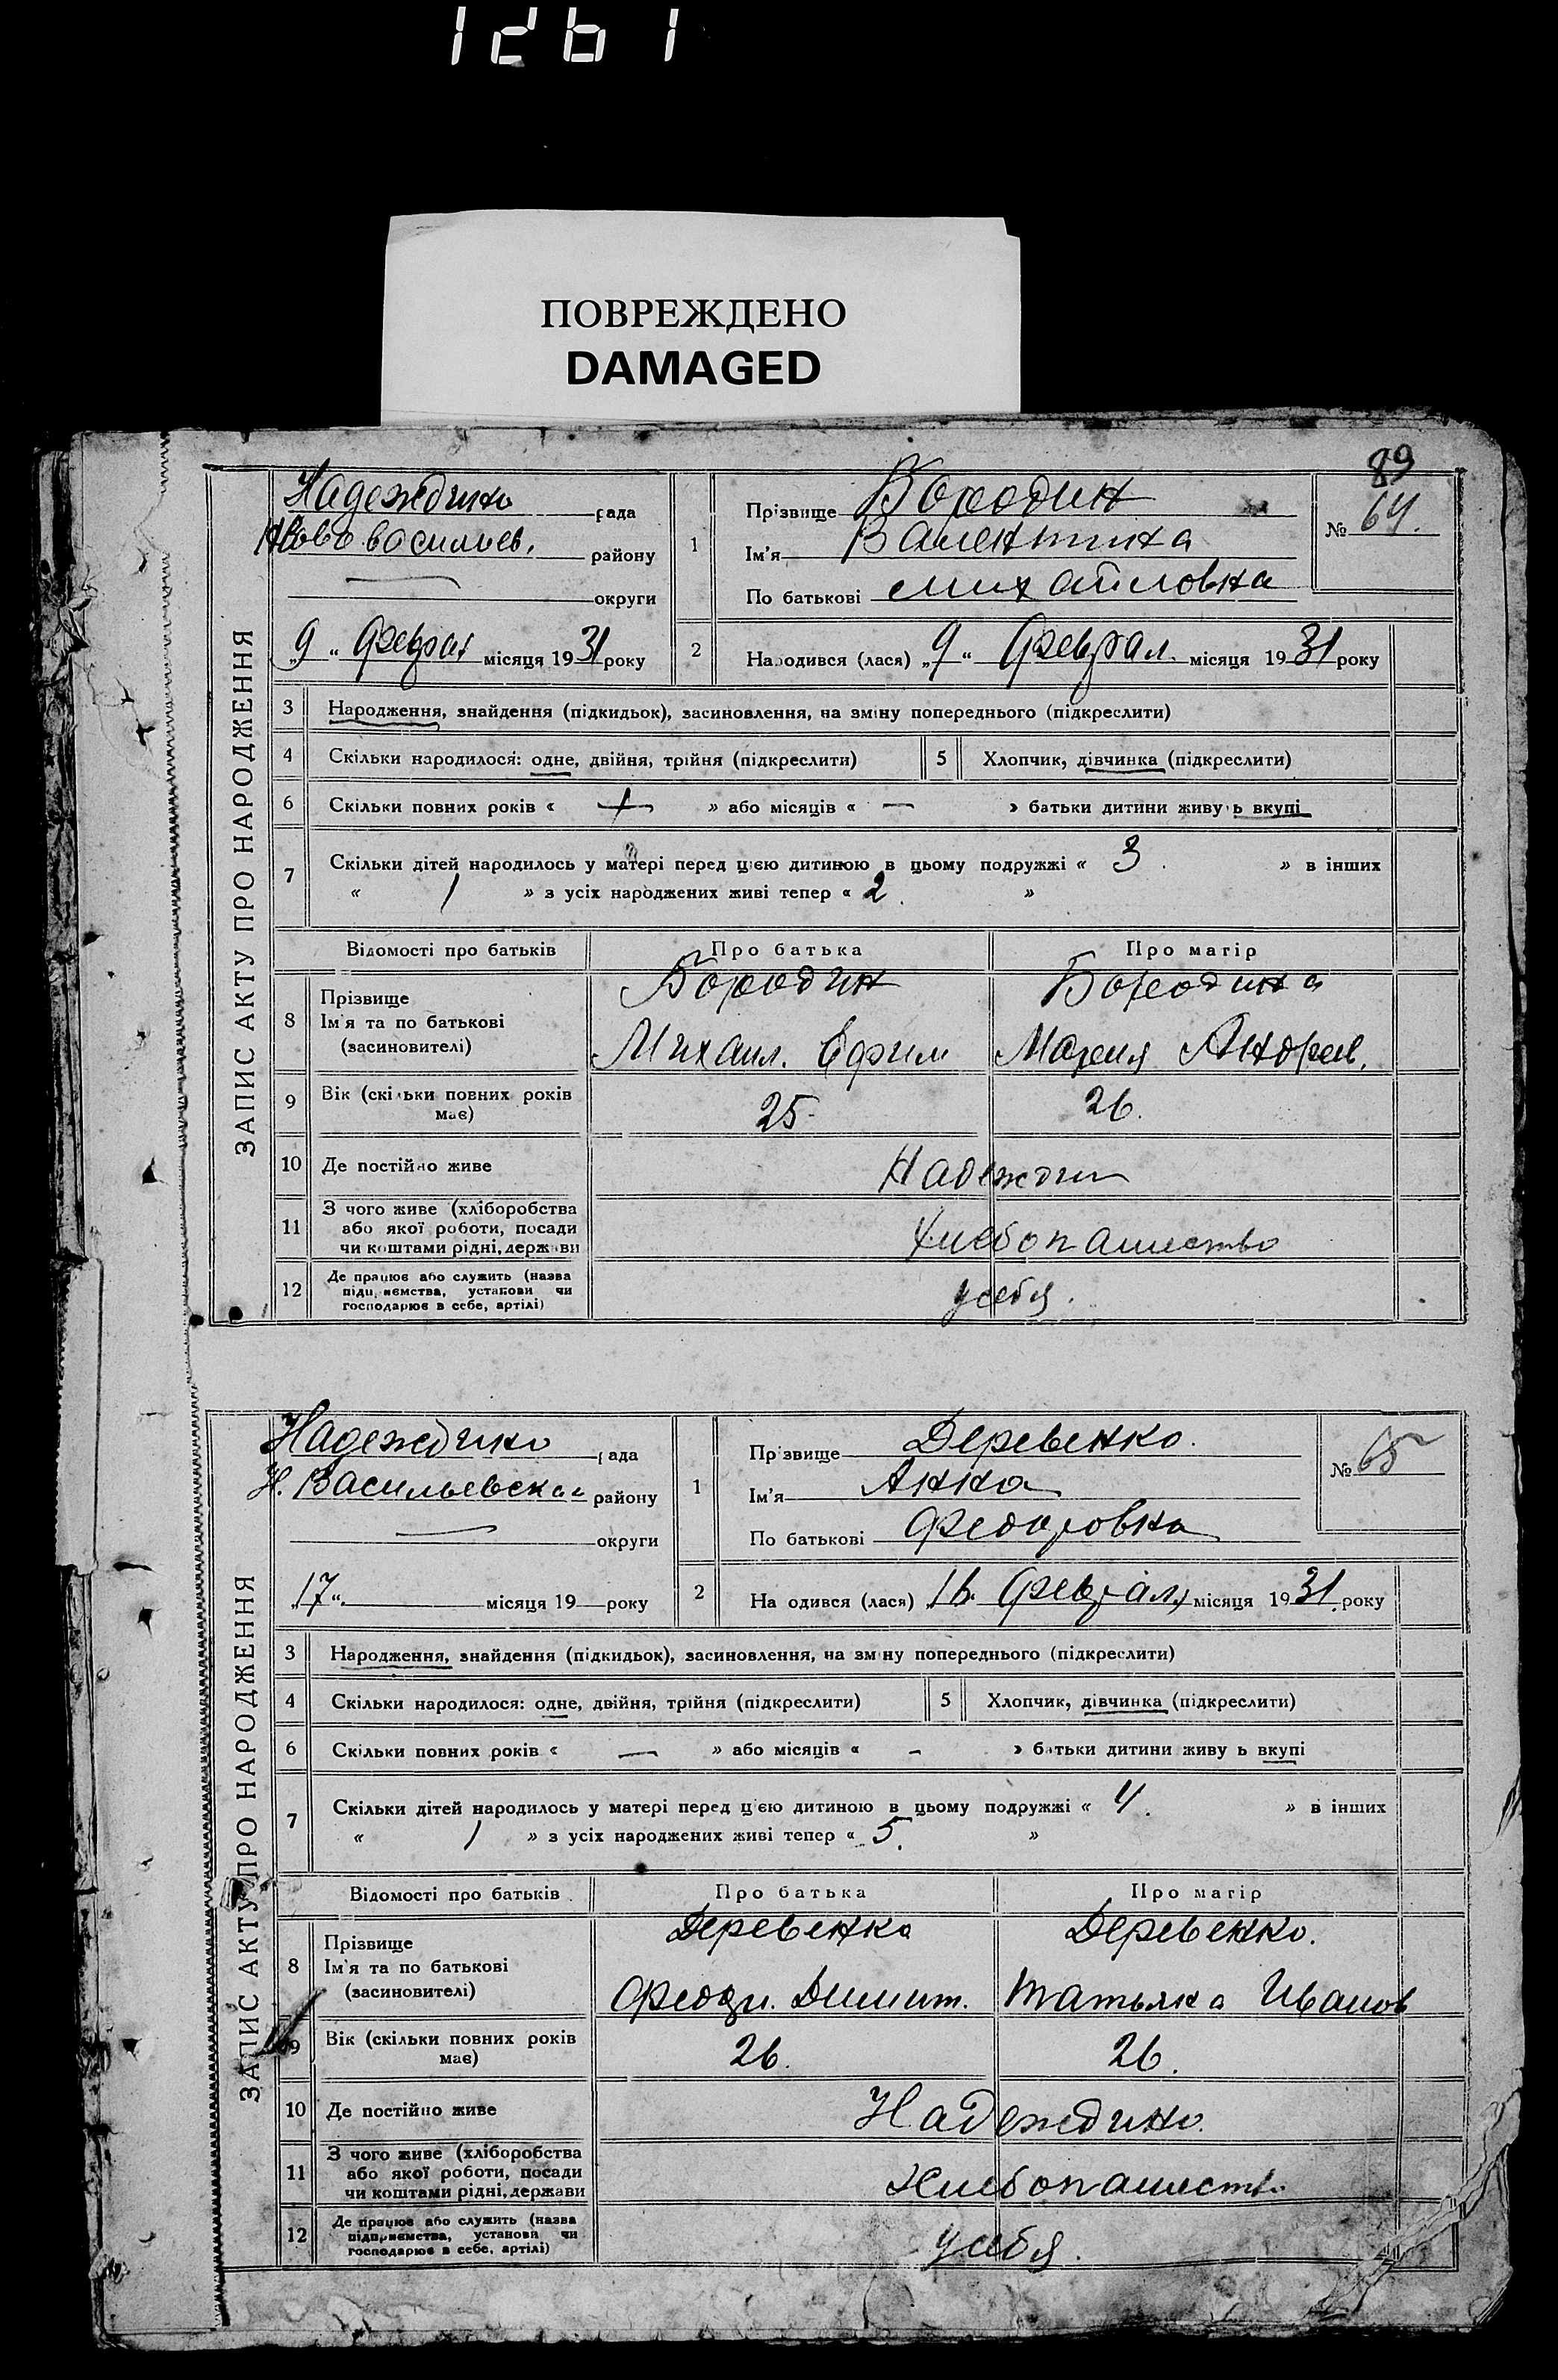 1261
ПОВРЕЖДЕНО
DAMAGED
89
ЗАПИС АКТУ ПРО НАРОДЖЕННЯ
Надеждино рада
Ново васильев. району
округи
„9“ Феврал місяця 1931 року
1
Прізвище Бородин
Ім'я Валентина
По батькові Михайловна
№ 64.
2
Народився (лася) „9“ Феврал. місяця 1931 року
3 Народження, знайдення (підкидьок), засиновлення, на зміну попереднього (підкреслити)
4 Скільки народилося: одне, двійня, трійня (підкреслити)
5 Хлопчик, дівчинка (підкреслити)
6 Скільки повних років « » або місяців « — » батьки дитини живуь вкупі
7 Скільки дітей народилось у матері перед цією дитиною в цьому подружжі « 3. » в інших
« / » з усіх народжених живі тепер « 2. »
Відомості про батьків Про батька Про матір
8 Прізвище Бородин Бородина
Ім'я та по батькові
(засновителі) Михаил. Ефим Мария Андреев.
9 Вік (скільки повних років має) 25. 26.
10 Де постійно живе Надеждин
11 З чого живе (хліборобства
або якої роботи, посади
чи коштами рідні, держави Хлебопашество
12 Де працює або служить (назва
підприємства, установи чи
господарює в себе, артілі) усебя.
ЗАПИС АКТУ ПРО НАРОДЖЕННЯ
Надеждино рада
Н. Васильевская району
округи
„17“ місяця 19 року
1
Прізвище Деревенко.
Ім'я Анна
По батькові Федоровна
№ 65
2
На одився (лася) 16. Феврал, місяця 1931. року
3 Народження, знайдення (підкидьок), засиновлення, на зміну попереднього (підкреслити)
4 Скільки народилося: одне, двійня, трійня (підкреслити)
5 Хлопчик, дівчинка (підкреслити)
6 Скільки повних років « — » або місяців « - » батьки дитини живу ь вкупі
7 Скільки дітей народилось у матері перед цією дитиною в цьому подружжі « 4. » в інших
« / » з усіх народжених живі тепер « 5. »
Відомості про батьків Про батька Про матір
8 Прізвище Деревенко Деревенко.
Ім'я та по батькові
(засиновителі) Димит. Татьяна Иванов
9 Вік (скільки повних років має) 26. 26.
10 Де постійно живе Надеждино.
11 З чого живе (хліборобства
або якої роботи, посади
чи коштами рідні, держави Хлебопашеств.
12 Де працює або служить (назва
підприємства, установи чи
господарює в себе, артілі) усебя.